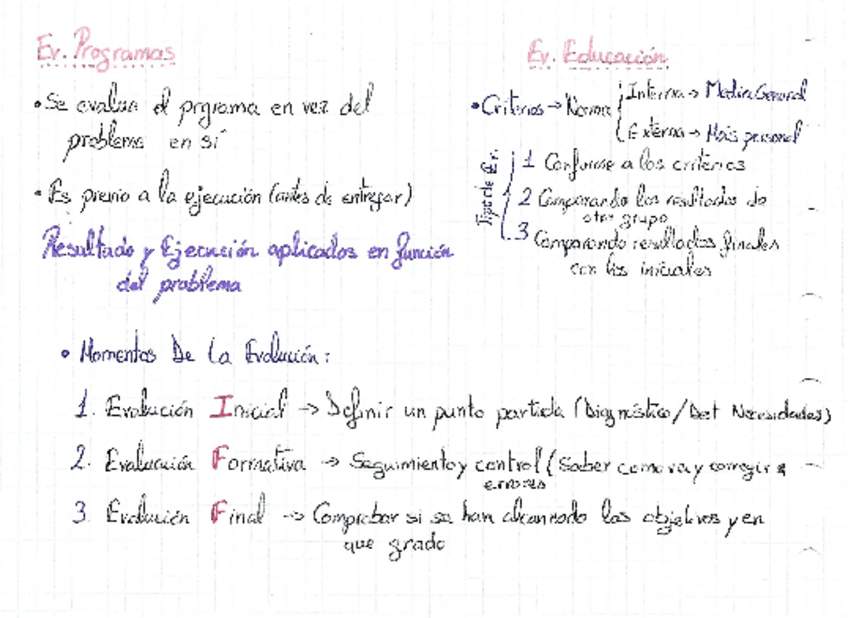 Ev. Programas
• Se evaluan el prgrama en vez del
problema en sí
• Es previo a la ejecución (antes de entregar)
Resultado y Ejecución aplicados en función
del problema
Ev. Educación
• Criterios → Norma
Interna → Media General
Externa → Mais personal
Tipo de Ev.
1 Conforme a los criterios
2 Comparando los resultados do
otro grupo
3 Comparando resultados finales
con los iniciales
• Momentos De La Evalución:
1. Evalución Inicial → Definir un punto partida (Diagnóstico/Det Necesidades)
2. Evaluación Formativa → Seguimiento y control (Saber como va y corregir
errores
3 Evalución Final → Comprobar si se han alcanzado los objetivos y en
que grado